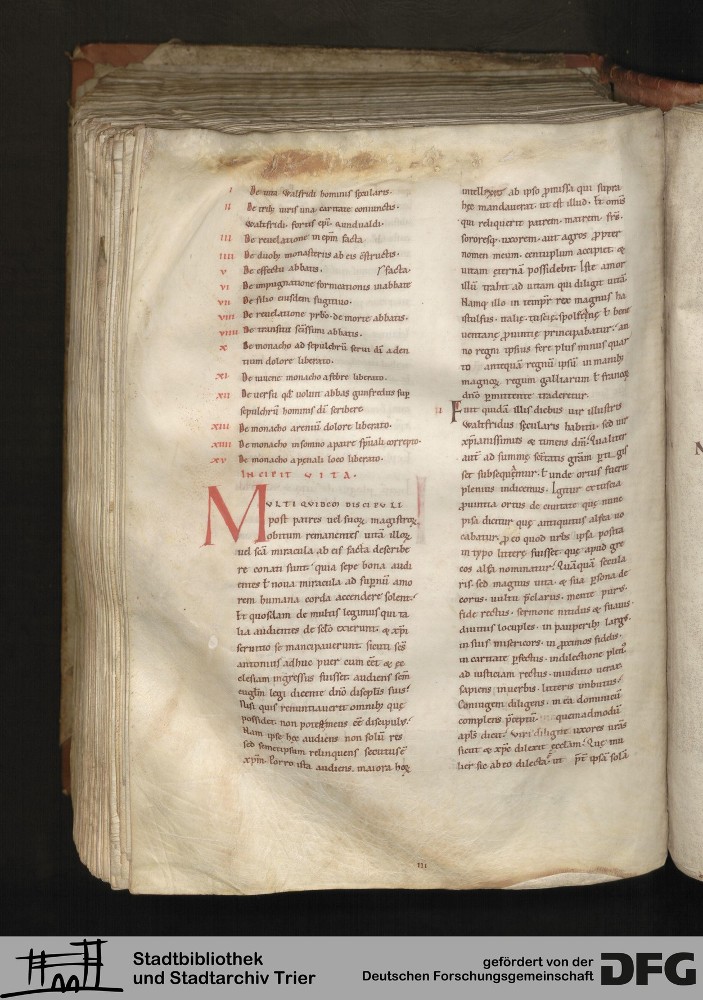 I De uita Walfridi hominis sęcularis.
II De trib; uiris una caritate coniunctis.
Walfridi. fortis epi. & undualdi.
III De reuelatione in epm facta.
IIII De duob; monasteriis ab eis cstructis.
V De effectu abbatis. facta.
VI De impugnatione fornicationis in abbate
VII De filio eiusdem fugitiuo.
VIII De reuelatione prbo. de morte abbatis.
VIIII De transitu scissimi abbatis.
X De monacho ad sepulchrū serui di a den
tium dolore liberato.
XI De iuuene monacho a febre liberato.
XII De uersu qd uoluit abbas gunfredus sup
sepulchrū hominis di scribere
XIII De monacho arentiū dolore liberato.
XIIII De monacho in somno a patre spuali correpto.
XV De monacho a penali loco liberato.
INCIPIT VITA.
MULTI QUIDĒ DISCIPULI
post patres uel suoꝝ magistroꝝ
obitum remanentes uitā illoꝝ
uel scā miracula ab eis facta describe
re conati sunt. quia sepe bona audi
entes t noua miracula ad supnū amo
rem humana corda accendere solent.
Et quosdam de multis legimus qui ta
lia audientes de sclo exierunt. & xpi
seruitio se mancipauerunt. sicuti scs
antonius adhuc puer cum eet & ec
clesiam ingressus fuisset audiens scm
euglm legi dicente dno disceplis suis.
Nisi quis renuntiauerit omnib; quę
possidet. non potest meus eē discipulus.
Nam ipse hęc audiens non solū res
sed semetipsum relinquens secutus ē
xpm. Porro ista audiens. maiora hoꝝ
intellexit ab ipso pmissa qui supra
hęc mandauerat. ut est illud. Et omis
qui reliquerit patrem. matrem. frs.
sororesq;. uxorem. aut agros ppter
nomen meum. centuplum accipiet. &
uitam eternā possidebit. Iste amor
illū trahit ad uitam qui diligit uitā.
Namq; illo in tempr rex magnus ha
istulfus. italię. tuscię. spoletinę t bene
uentanę puintię principabatur. an
no regni ipsius fere plus minus quar
to antequā regnū ipsiꝰ in manib;
magnoꝝ regum galliarum t francoꝝ
dno pmittente traderetur.
II Fuit quidā illis dieb; uir illustris
Walfridus sęcularis habitu. sed uir
xpianissimus & timens dm. Qualiter
aut ad summę scitatis grām pti gis
set subsequemur. t unde ortus fuerit
plenius indicemus. Igitur ex tuscia
puintia ortus de ciuitate quę nunc
pisa dicitur quę antiquitus alfea uo
cabatur. p eo quod urbs ipsa posita
in typo litterę fuisset. quę apud gre
cos alfa nominatur. Quāquā secula
ris. sed magnus uita & sua psona de
corus. uultu pclarus. mente purꝰ.
fide rectus. sermone nitidus & suauis.
diuitiis locuples. in pauperib; largꝰ.
in suis misericors. in pximos fidelis.
in caritate pfectus. in dilectione plenꝰ
ad iustitiam rectus. in iuditio uerax
sapiens in uerbis. litteris imbutus.
Coniugem diligens. in eā dominicū
complens pceptū. quemadmodū
apls dicit. Viri diligite uxores urās
sicut & xpc dilexit ęcclam. Quę mu
lier sic ab eo dilecta ut pt ipsā solā
III
Stadtbibliothek
und Stadtarchiv Trier
gefördert von der
Deutschen Forschungsgemeinschaft
DFG